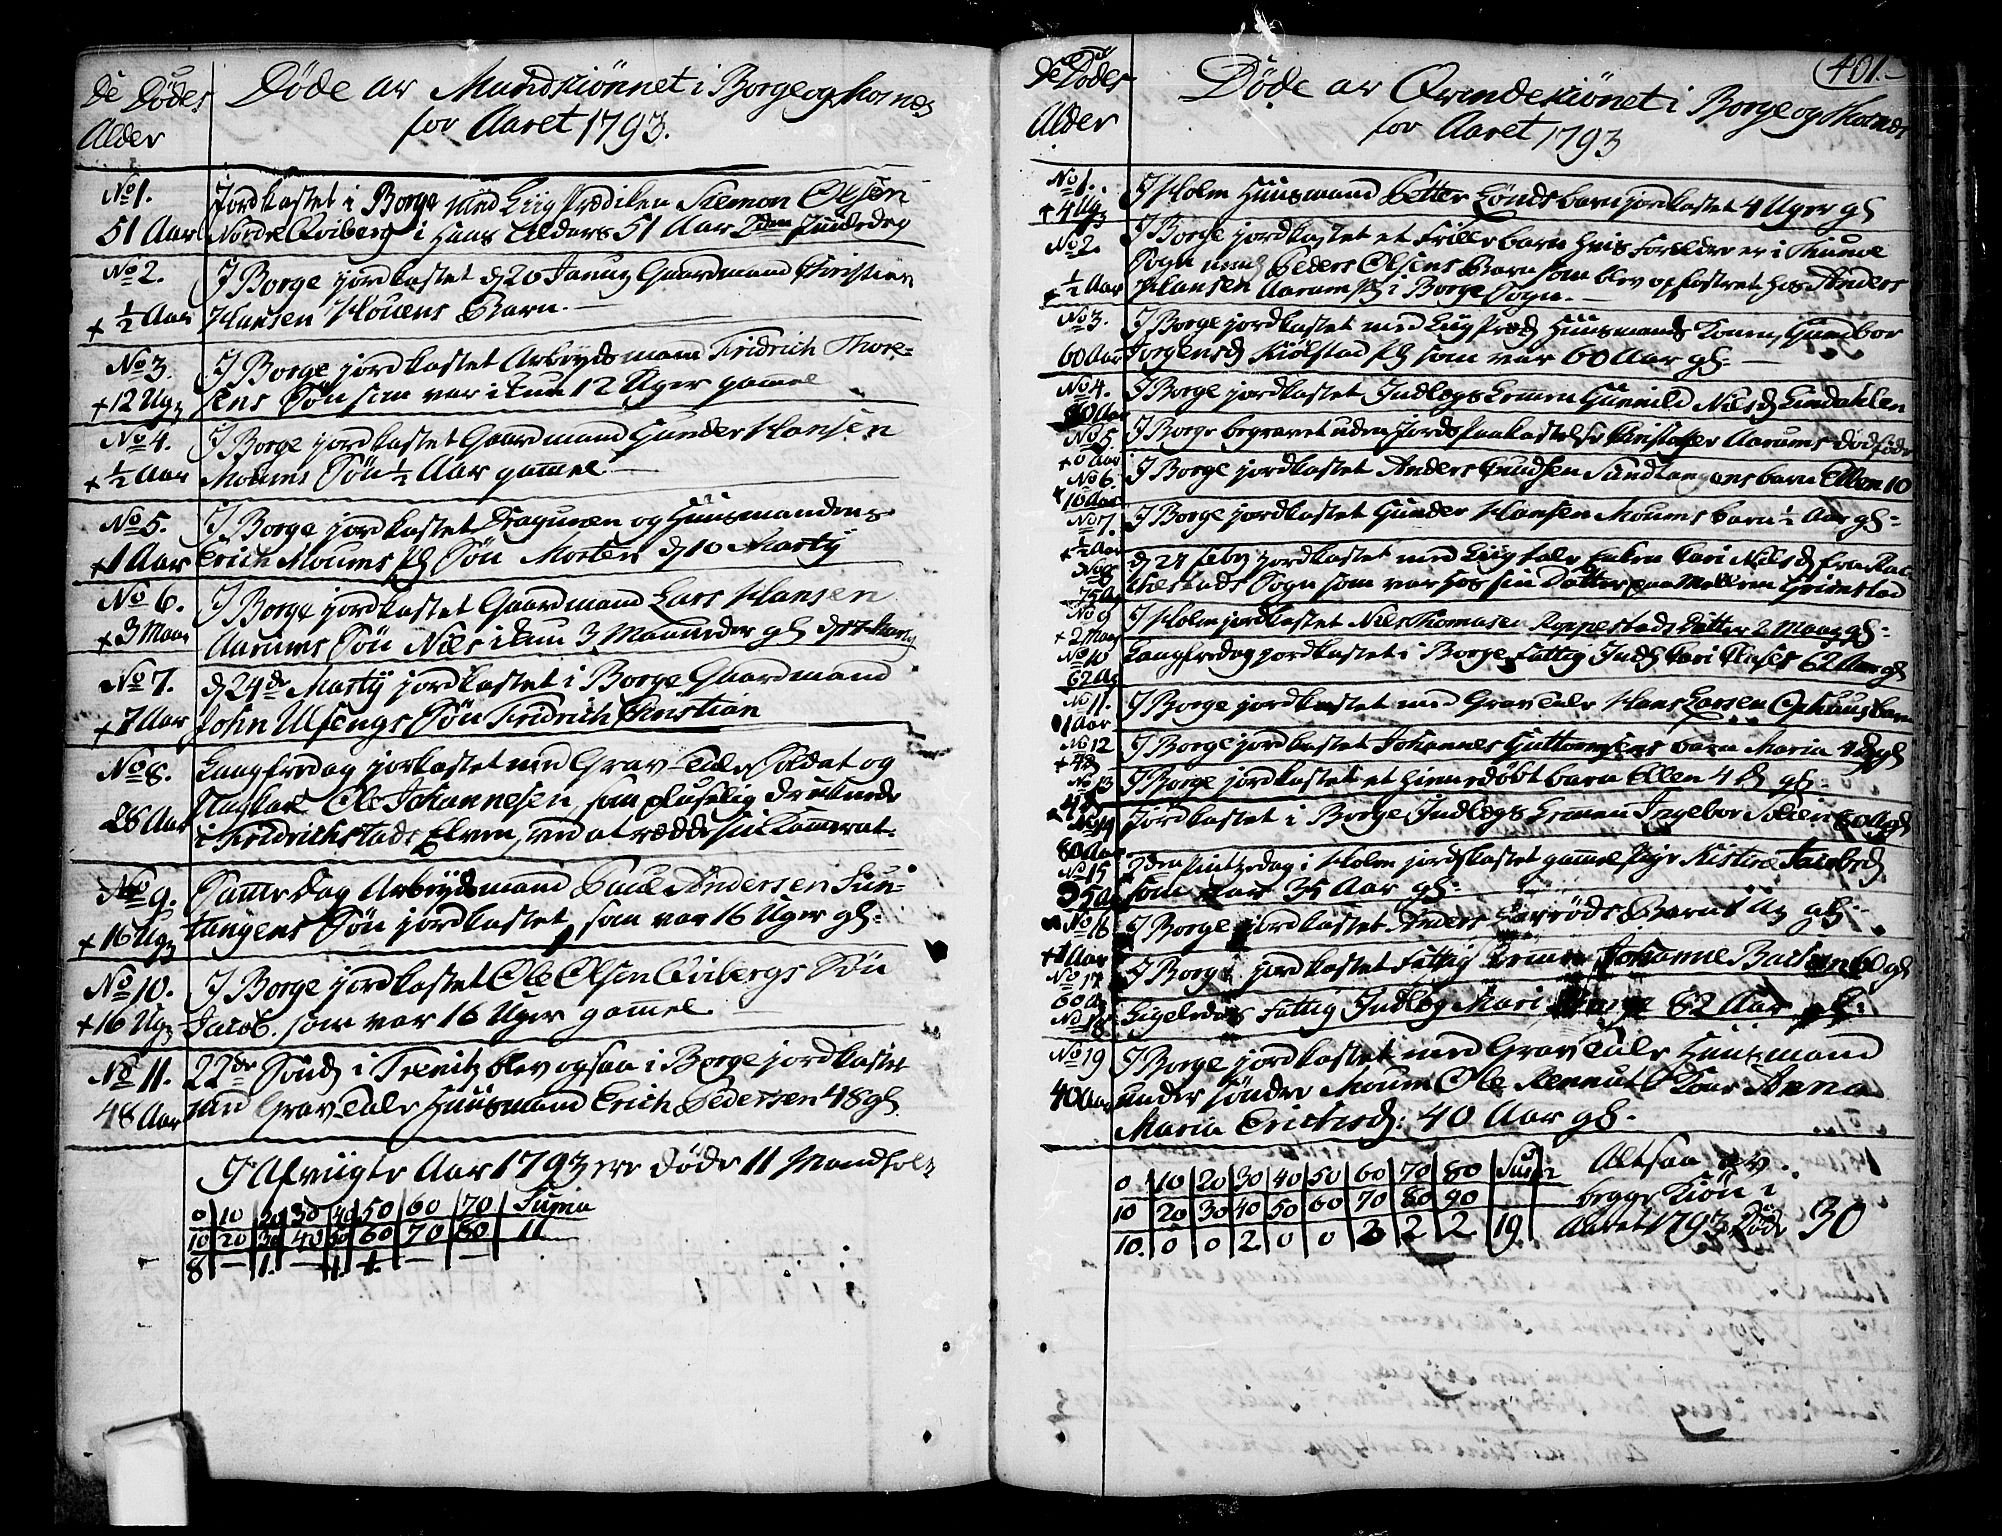 De Dødes
Alder
Døde av Mandkiønnet i Borge og Thorsnes
for Aaret 1793.
No 1.
51 Aar
Jordkastet i Borge med Liig Prædiken Siemon Olsøn
Nordre Qviberg i Hans Alders 51 Aar 2den Juledag
No 2.
+ ½ Aar
J Borge jordkastet d 26 Januar Gaardmand Christian
Hansen Houens Barn.
No 3.
+ 12 Ugr
J Borge jordkastet Arbeydsmand Fridrich Thore-
sens Søn som var ikun 12 Uger gammel
No 4.
+ ½ Aar
J Borge jordkastet Gaardmand Gunder Hansen
Moums Søn ½ Aar gammel
No 5.
+ 1 Aar
J Borge jordkastet Dragunen og Huusmandens
Erich Moums Søn Morten d 10 Marty
No 6.
+ 3 Maan
J Borge jordkastet Gaardmand Lars Hansen
Aarums Søn Niels ikun 3 Maaneder gl d 17 Marty
No 7.
+ 7 Aar
d 24de Martij jordkastet i Borge Gaardmand
John Ulfengs Søn Fridrich Christian
No 8.
28 Aar
Langfredag jorkastet med Grav-Tale Soldat og
Ole Johannesen, som pluselig druknede
i Fridrichstads Elven, ved at rædde sin Kammerat.
No 9.
+ 16 Ugr
Samme Dag Arbeydsmand Poul Andersen Sun-
tangens Søn jordkastet, som var 16 Uger gl:
No 10.
+ 16 Ugr
J Borge jordkastet Ole Olsen Qvibergs Søn
Jacob. som var 16 Uger gammel
No 11.
48 Aar
22de Sønd i Trenit blev ogsaa i Borge jordkastet
med Grav Tale Huusmand Erich Pedersen 48 gl.
J Afvigte Aar 1793 ere døde 11 Mandfolk
0 | 10 | 20 | 30 | 40 | 50 | 60 | 70 | Suma
10 | 20 | 30 | 40 | 50 | 60 | 70 | 80 | 11
8 | — | 1. | — | 1. | 1. | — | —
401.
De Dødes
Alder
Døde av Qvindekiønet i Borge og Thorsnes
for Aaret 1793
No 1.
+ 4 Ug
J Holm Huusmand Petter Lønds barn jordkastet 4 Uger gl
No 2.
+ ½ Aar
J Borge jordkastet et Frille barn hvis Forældre er i Thune
Sogn Peders Olsens Barn som blev opfostret hos Anders
Hansen Aarum i Borge Sogn.
No 3.
60 Aar
J Borge jordkastet med Liig Præd Huusmands Konen Gundbor
Jorgensd Kiølstad som var 60 Aar gl.
No 4.
80 Aar
J Borge jordkastet Indlægs Lemmen Gunnild Nilsd Lindahlen
No 5
+ 0 Aar
J Borge begravet uden Jords paakastelse Christopher Aarums dødfødt
No 6.
+ 10 Aar
J Borge jordkastet Anders Knudsen Sundtangens barn Ellen 10
No 7.
+ ½ Aar
J Borge jordkastet Gunder Hansen Moums barn ½ Aar gl:
No 8
75 A
d 27 Febr jordkastet med Liigtale Enken Kari Nilsd fra Rac-
kestads Sogn som var hos sin Datter paa Mellem Grimstad
No 9
+ 2 Maan
J Holm jordkastet Nils Thomesen Roppestads Datter 2 Maan gl:
No 10
62 A
Langfredag jordkastet i Borge Fattig Indl Kari 62 Aar gl
No 11.
1 Aar
J Borge jordkastet med Grav Tale Hans Larsen Ophaugs barn
No 12
+ 4 d
J Borge jordkastet Johannes Guttormsens barn Maria 4 d gl
No 13
4 d
J Borge jordkastet et hiemedøbt barn Ellen 4 d gl.
No 14
80 Aar
jordkastet i Borge Indlægs Lemmen Ingebor 80 A gl
No 15
35 A
2den Pintsedag i Holm jordkastet gammel Pige Kistine Jacobsd
som var 35 Aar gl:
No 16
+ 1 Aar
J Borge jordkastet Anders Barn 1 A gl:
No 17
60 A
J Borge jordkastet Fattig Lemmen Johanne 60 gl
No 18
Ligeledes Fattig Indlæg Mari 82 Aar gl:
No 19
40 Aar
J Borge jordkastet med Grav Tale Huusmand
under søndre Moum Ole Kone Anna
Maria Erichsd: 40 Aar gl.
0 | 10 | 20 | 30 | 40 | 50 | 60 | 70 | 80 | Sum
10 | 20 | 30 | 40 | 50 | 60 | 70 | 80 | 90
10. | 0 | 0 | 2 | 0 | 0 | 3 | 2 | 2 | 19
Altsaa av
begge Kiøn i
Aaret 1793 Døde 30